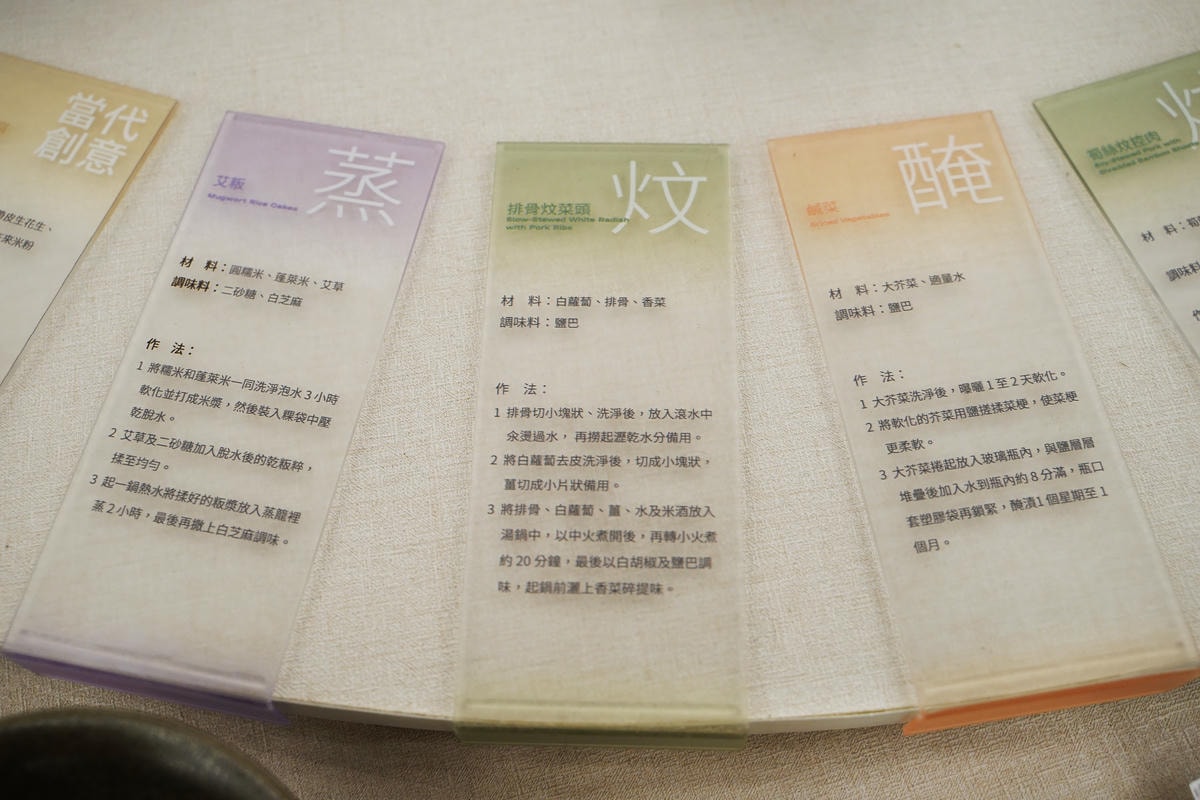 當代
創意
皮生花生、
來米粉
蒸
艾粄
Mugwort Rice Cakes
材　料：圓糯米、蓬萊米、艾草
調味料：二砂糖、白芝麻
作　法：
1 將糯米和蓬萊米一同洗淨泡水 3 小時
軟化並打成米漿，然後裝入粿袋中壓
乾脫水。
2 艾草及二砂糖加入脫水後的乾粄粹，
揉至均勻。
3 起一鍋熱水將揉好的粄漿放入蒸籠裡
蒸 2 小時，最後再撒上白芝麻調味。
炆
排骨炆菜頭
Slow-Stewed White Radish
with Pork Ribs
材　料：白蘿蔔、排骨、香菜
調味料：鹽巴
作　法：
1 排骨切小塊狀、洗淨後，放入滾水中
汆燙過水， 再撈起瀝乾水分備用。
2 將白蘿蔔去皮洗淨後，切成小塊狀，
薑切成小片狀備用。
3 將排骨、白蘿蔔、薑、水及米酒放入
湯鍋中，以中火煮開後，再轉小火煮
約 20 分鐘，最後以白胡椒及鹽巴調
味，起鍋前灑上香菜碎提味。
醃
鹹菜
Brined Vegetables
材　料：大芥菜、適量水
調味料：鹽巴
作　法：
1 大芥菜洗淨後，曝曬 1 至 2 天軟化。
2 將軟化的芥菜用鹽搓揉菜梗，使菜梗
更柔軟。
3 大芥菜捲起放入玻璃瓶內，與鹽層層
堆疊後加入水到瓶內約 8 分滿，瓶口
套塑膠袋再鎖緊，醃漬1 個星期至 1
個月。
筍絲炆控肉
材　料：筍
調味料